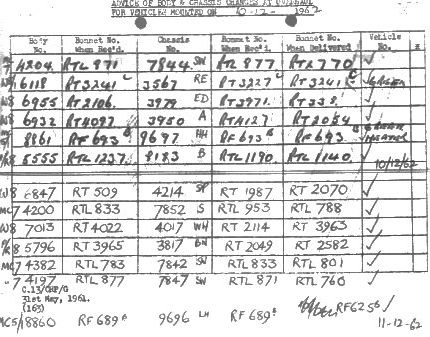 ADVICE OF BODY & CHASSIS CHANGES AT
FOR VEHICLES MOUNTED ON 10-12- 1962
Body No. Bonnet No. When Rec'd. Chassis No. Bonnet No. When Rec'd. Bonnet No. When Delivered Vehicle No.
7 4204 RTL 871 7844 SW RTL 877 RTL 770 ✓
6118 RT3241 C 3567 RE RT3227 C RT3241 C ✓ GREEN
W8 6955 RT2106 3979 ED RT3971 RT338 ✓
W8 6932 RT4097 3950 A RT4127 RT2054 ✓
8861 RF693 B 9697 HH RF693 B RF693 B ✓ GREEN
5555 RTL1237 8183 B RTL1190 RTL1140 ✓ 10/12/62
W8 6847 RT 509 4214 SP RT 1987 RT 2070 ✓
MC7 4200 RTL 833 7852 S RTL 953 RTL 788 ✓
W8 7013 RT 4022 4017 WH RT 2114 RT 3963 ✓
R8 5796 RT 3965 3817 BN RT 2049 RT 2582 ✓
MC7 4382 RTL 783 7842 SW RTL 833 RTL 801 ✓
7 4197 RTL 877 7847 SW RTL 871 RTL 760 ✓
C.13/CRF/G
31st May, 1961.
(163)
MC5/18860 RF 689 B 9696 LH RF 689 B RF625 B ✓
11-12-62